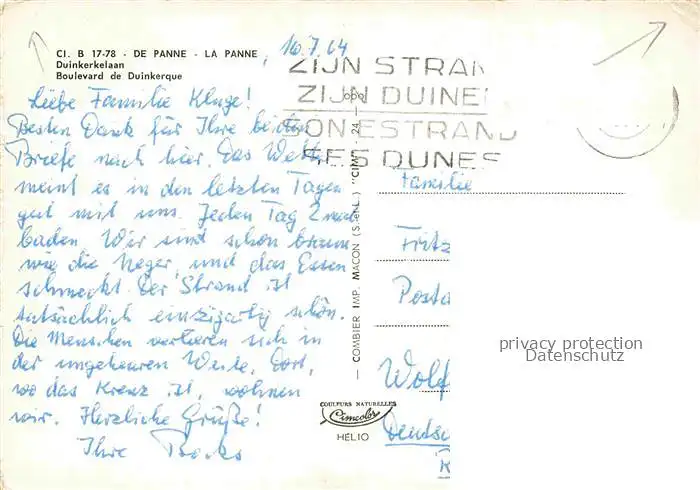 CI. B 17-78 - DE PANNE - LA PANNE
Duinkerkelaan
Boulevard de Duinkerque
16.7.64
ZIJN STRAN
ZIJN DUINEN
SON ESTRAND
SES DUNES
Liebe Familie Kluge!
Besten Dank für Ihre beiden
Briefe nach hier. Das Wetter
meint es in den letzten Tagen
gut mit uns. Jeden Tag 2 mal
baden. Wir sind schon braun
wie die Neger, und das Essen
schmeckt. Der Strand ist
tatsächlich einzigartig schön.
Die Menschen verlieren sich in
der ungeheuren Weite. Dort,
wo das Kreuz ist, wohnen
wir. Herzliche Grüße!
Ihre
COMBIER IMP. MACON (S.-et-L.) "CIM" 24
Familie
Fritz
Posta
Wolf
Deutsc
privacy protection
Datenschutz
COULEURS NATURELLES
Cimcolor
HÉLIO